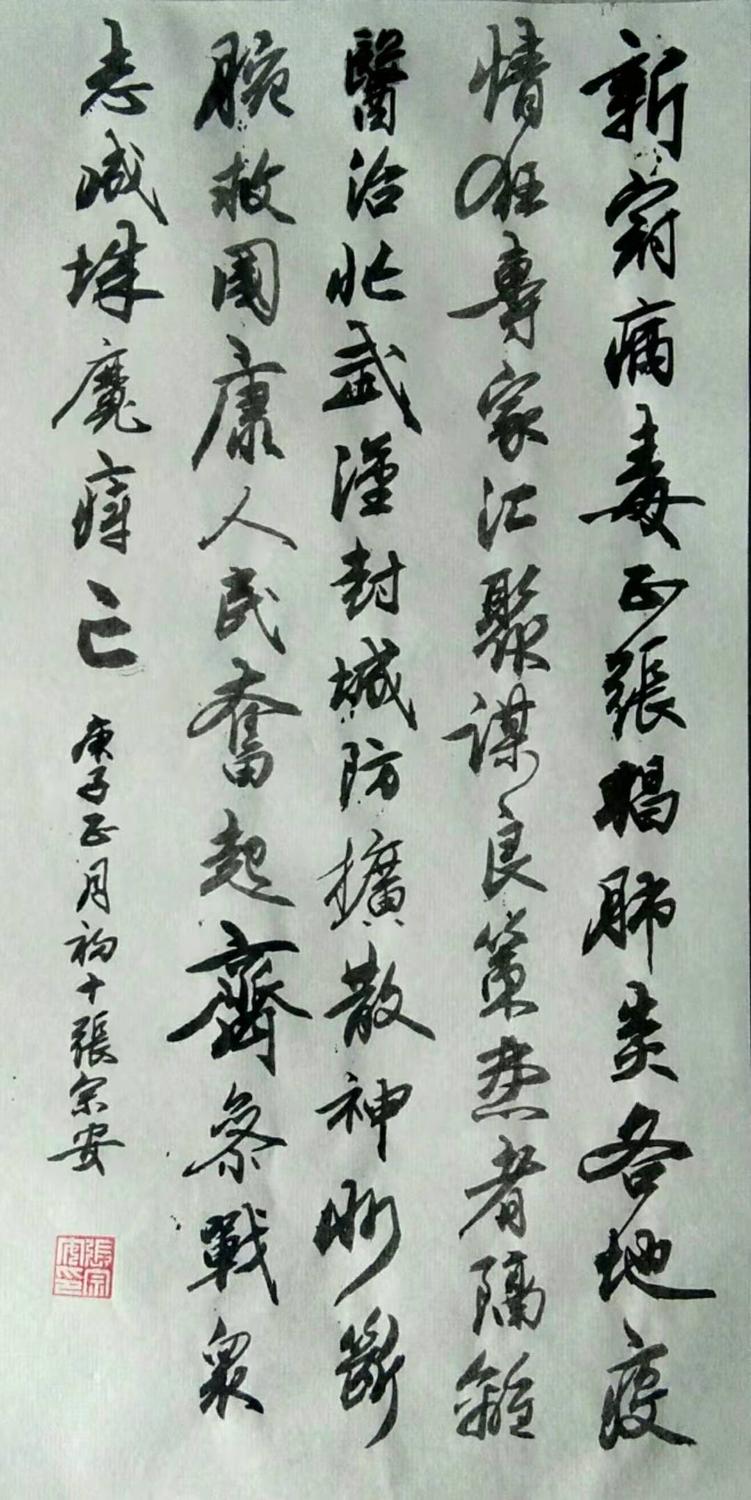 新冠病毒正張猖肺炎各地疫
情狂專家汇聚謀良策患者隔離
醫治忙武漢封城防擴散神州斷
腕救國康人民奮起齊參戰眾
志成城魔瘴亡
庚子正月初十張宗安
張宗安印